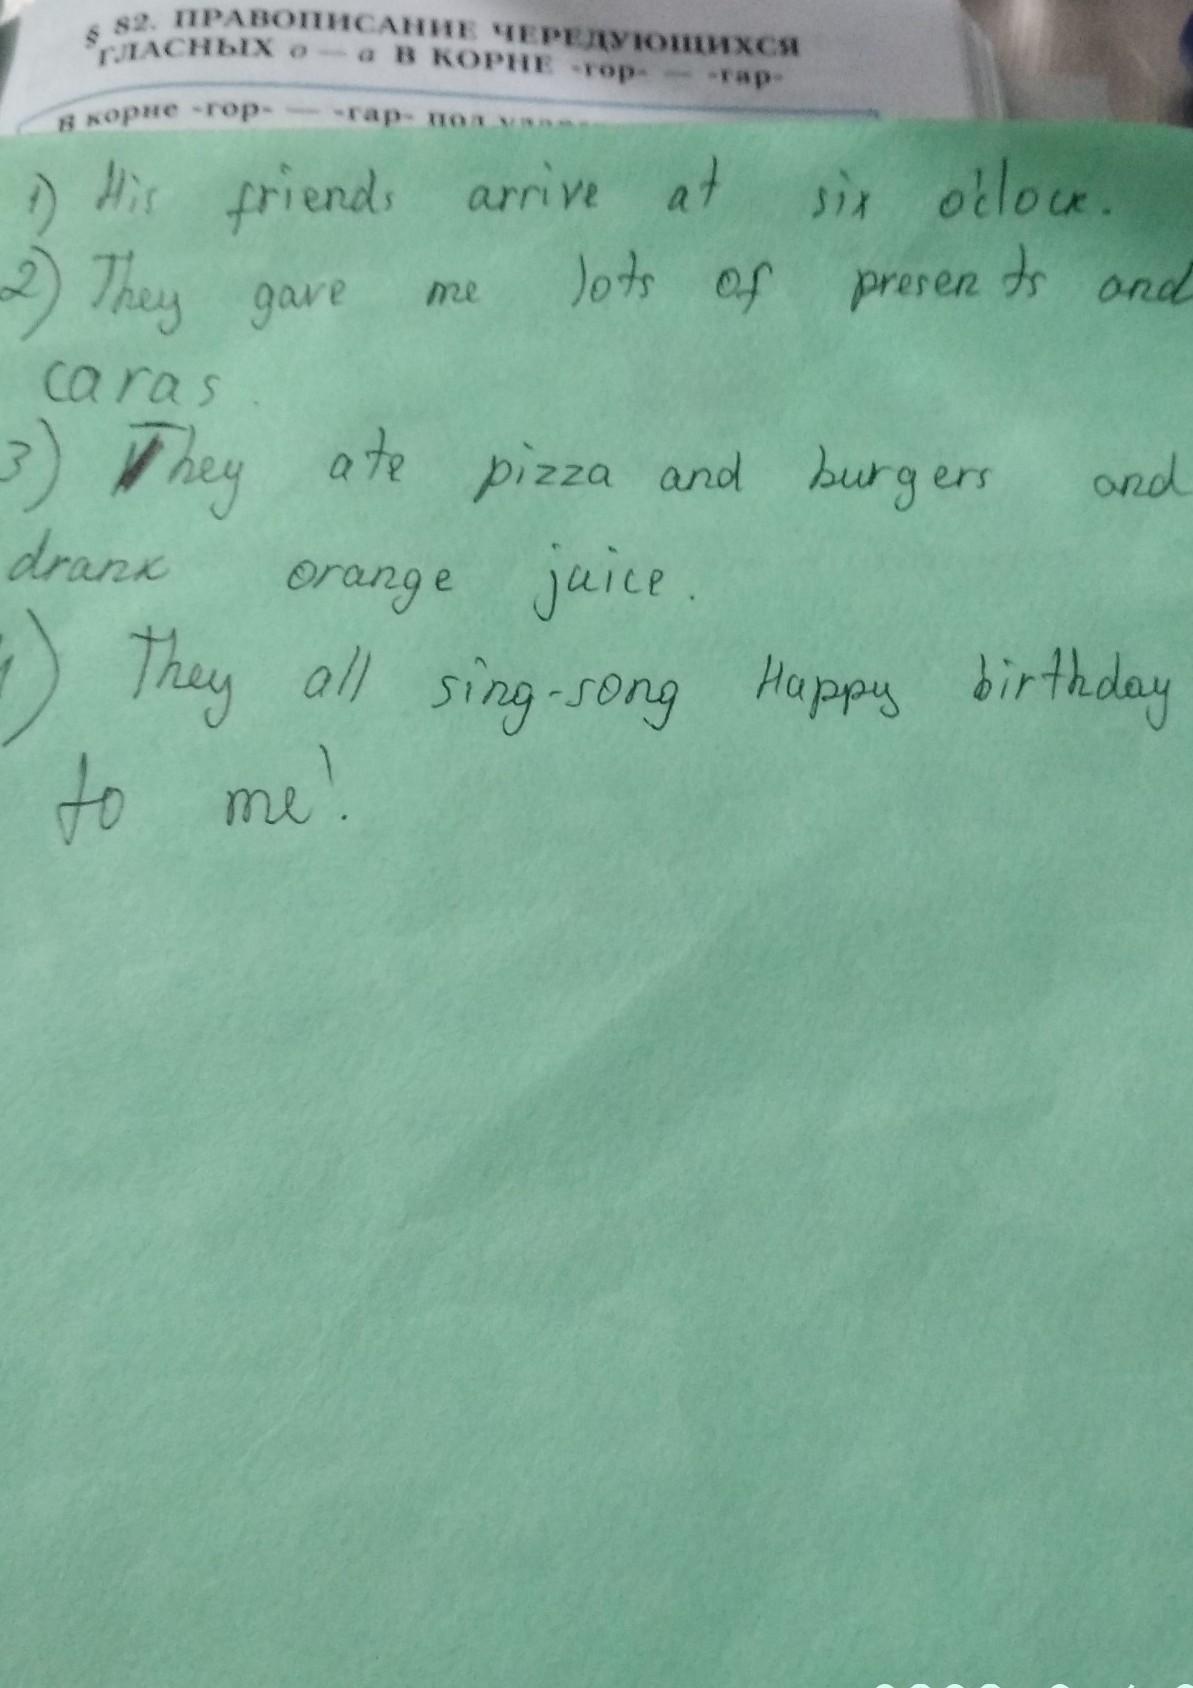 § 82. ПРАВОПИСАНИЕ ЧЕРЕДУЮЩИХСЯ
ГЛАСНЫХ о — а В КОРНЕ -гор- — -гар-
В корне -гор- — -гар- под
1) His friends arrive at six o'clock.
2) They gave me lots of presents and
caras.
3) They ate pizza and burgers and
drank orange juice.
4) They all sing-song Happy birthday
to me!